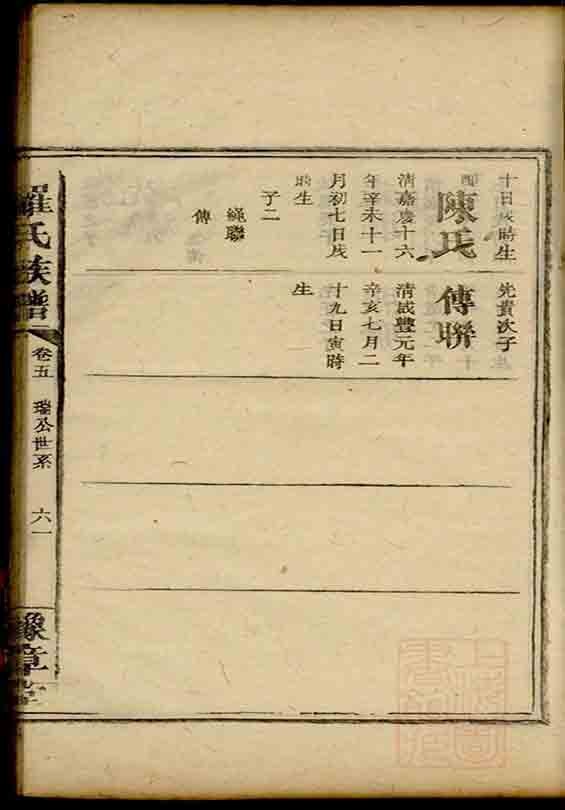 十日戌時生
配
陳氏
清嘉慶十六
年辛未十一
月初七日戌
時生
子二
繩聯
傳聯
先貴次子
傳聯
清咸豐元年
辛亥七月二
十九日寅時
生
羅氏族譜
卷五
瑞公世系
六一
豫章堂